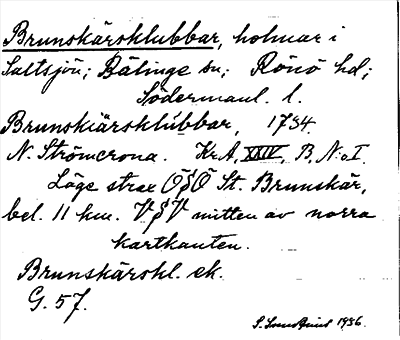 Brunskärsklubbar, holmar i
Saltsjön; Bälinge sn; Rönö hd;
Södermanl. l.
Brunskiärsklúbbar, 1734.
N. Strömcrona. Kr.A, XXIV, B, N:o I.
Läge strax ÖSÖ St. Brunskär,
bel. 11 km. VSV mitten av norra
kartkanten.
Brunskärskl. ek.
G. 57.
1936.